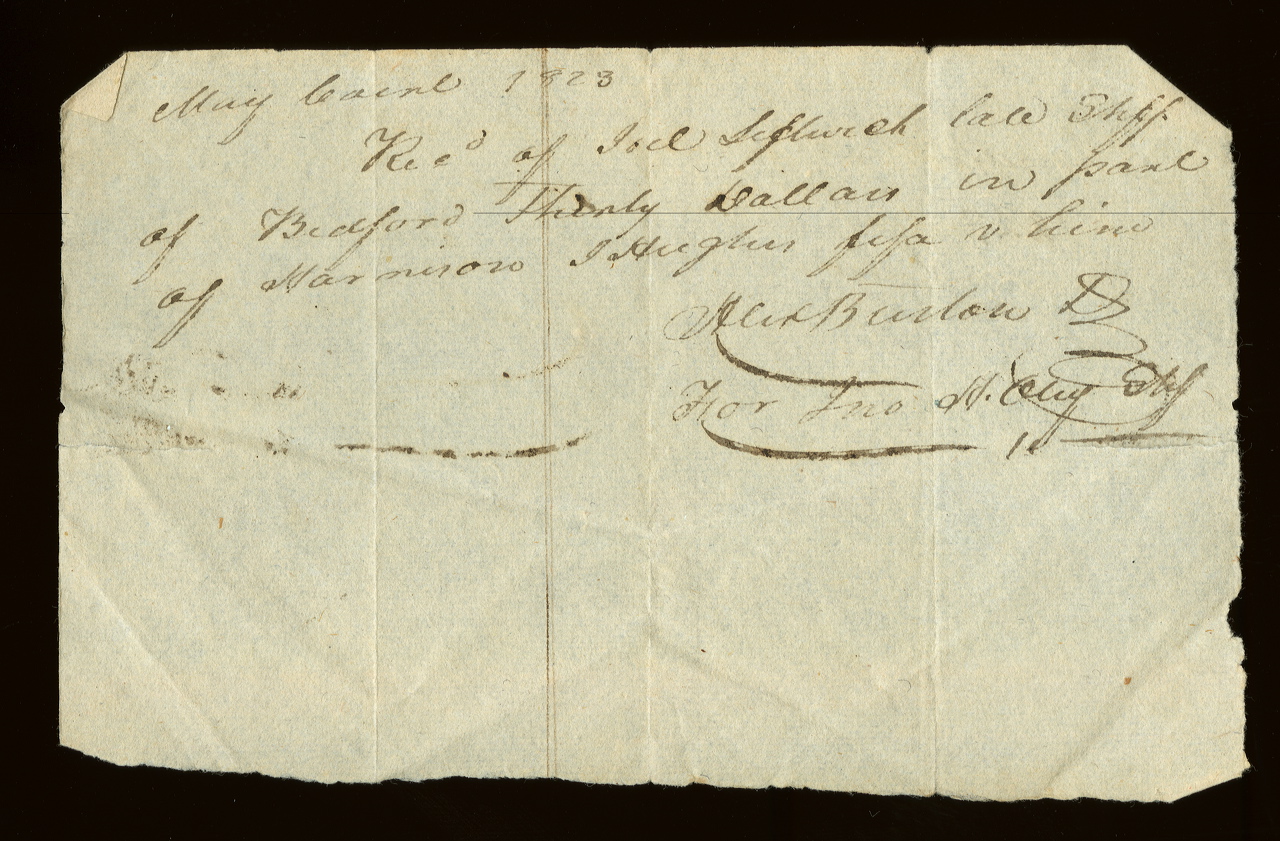 May Court 1823
Recd of Joel Leftwich late Shff
of Bedford Thirty Dollars in part
of Harrison & Hughes fifa v him
Alex Burton D
For Jno H. Otey Shff